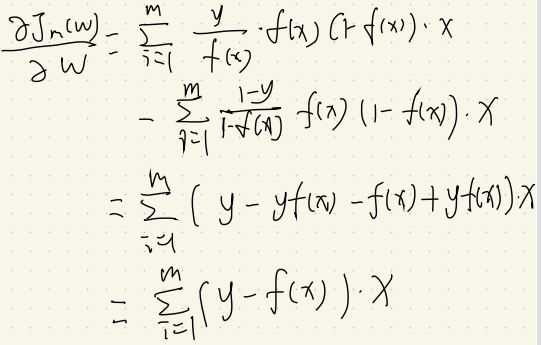 ∂Jₙ(w)/∂w = Σ_{i=1}^{m} y/f(x) · f(x) (1-f(x)) · x
- Σ_{i=1}^{m} (1-y)/(1-f(x)) f(x) (1-f(x)) · x
= Σ_{i=1}^{m} (y - yf(x) - f(x) + yf(x)) · x
= Σ_{i=1}^{m} (y - f(x)) · x